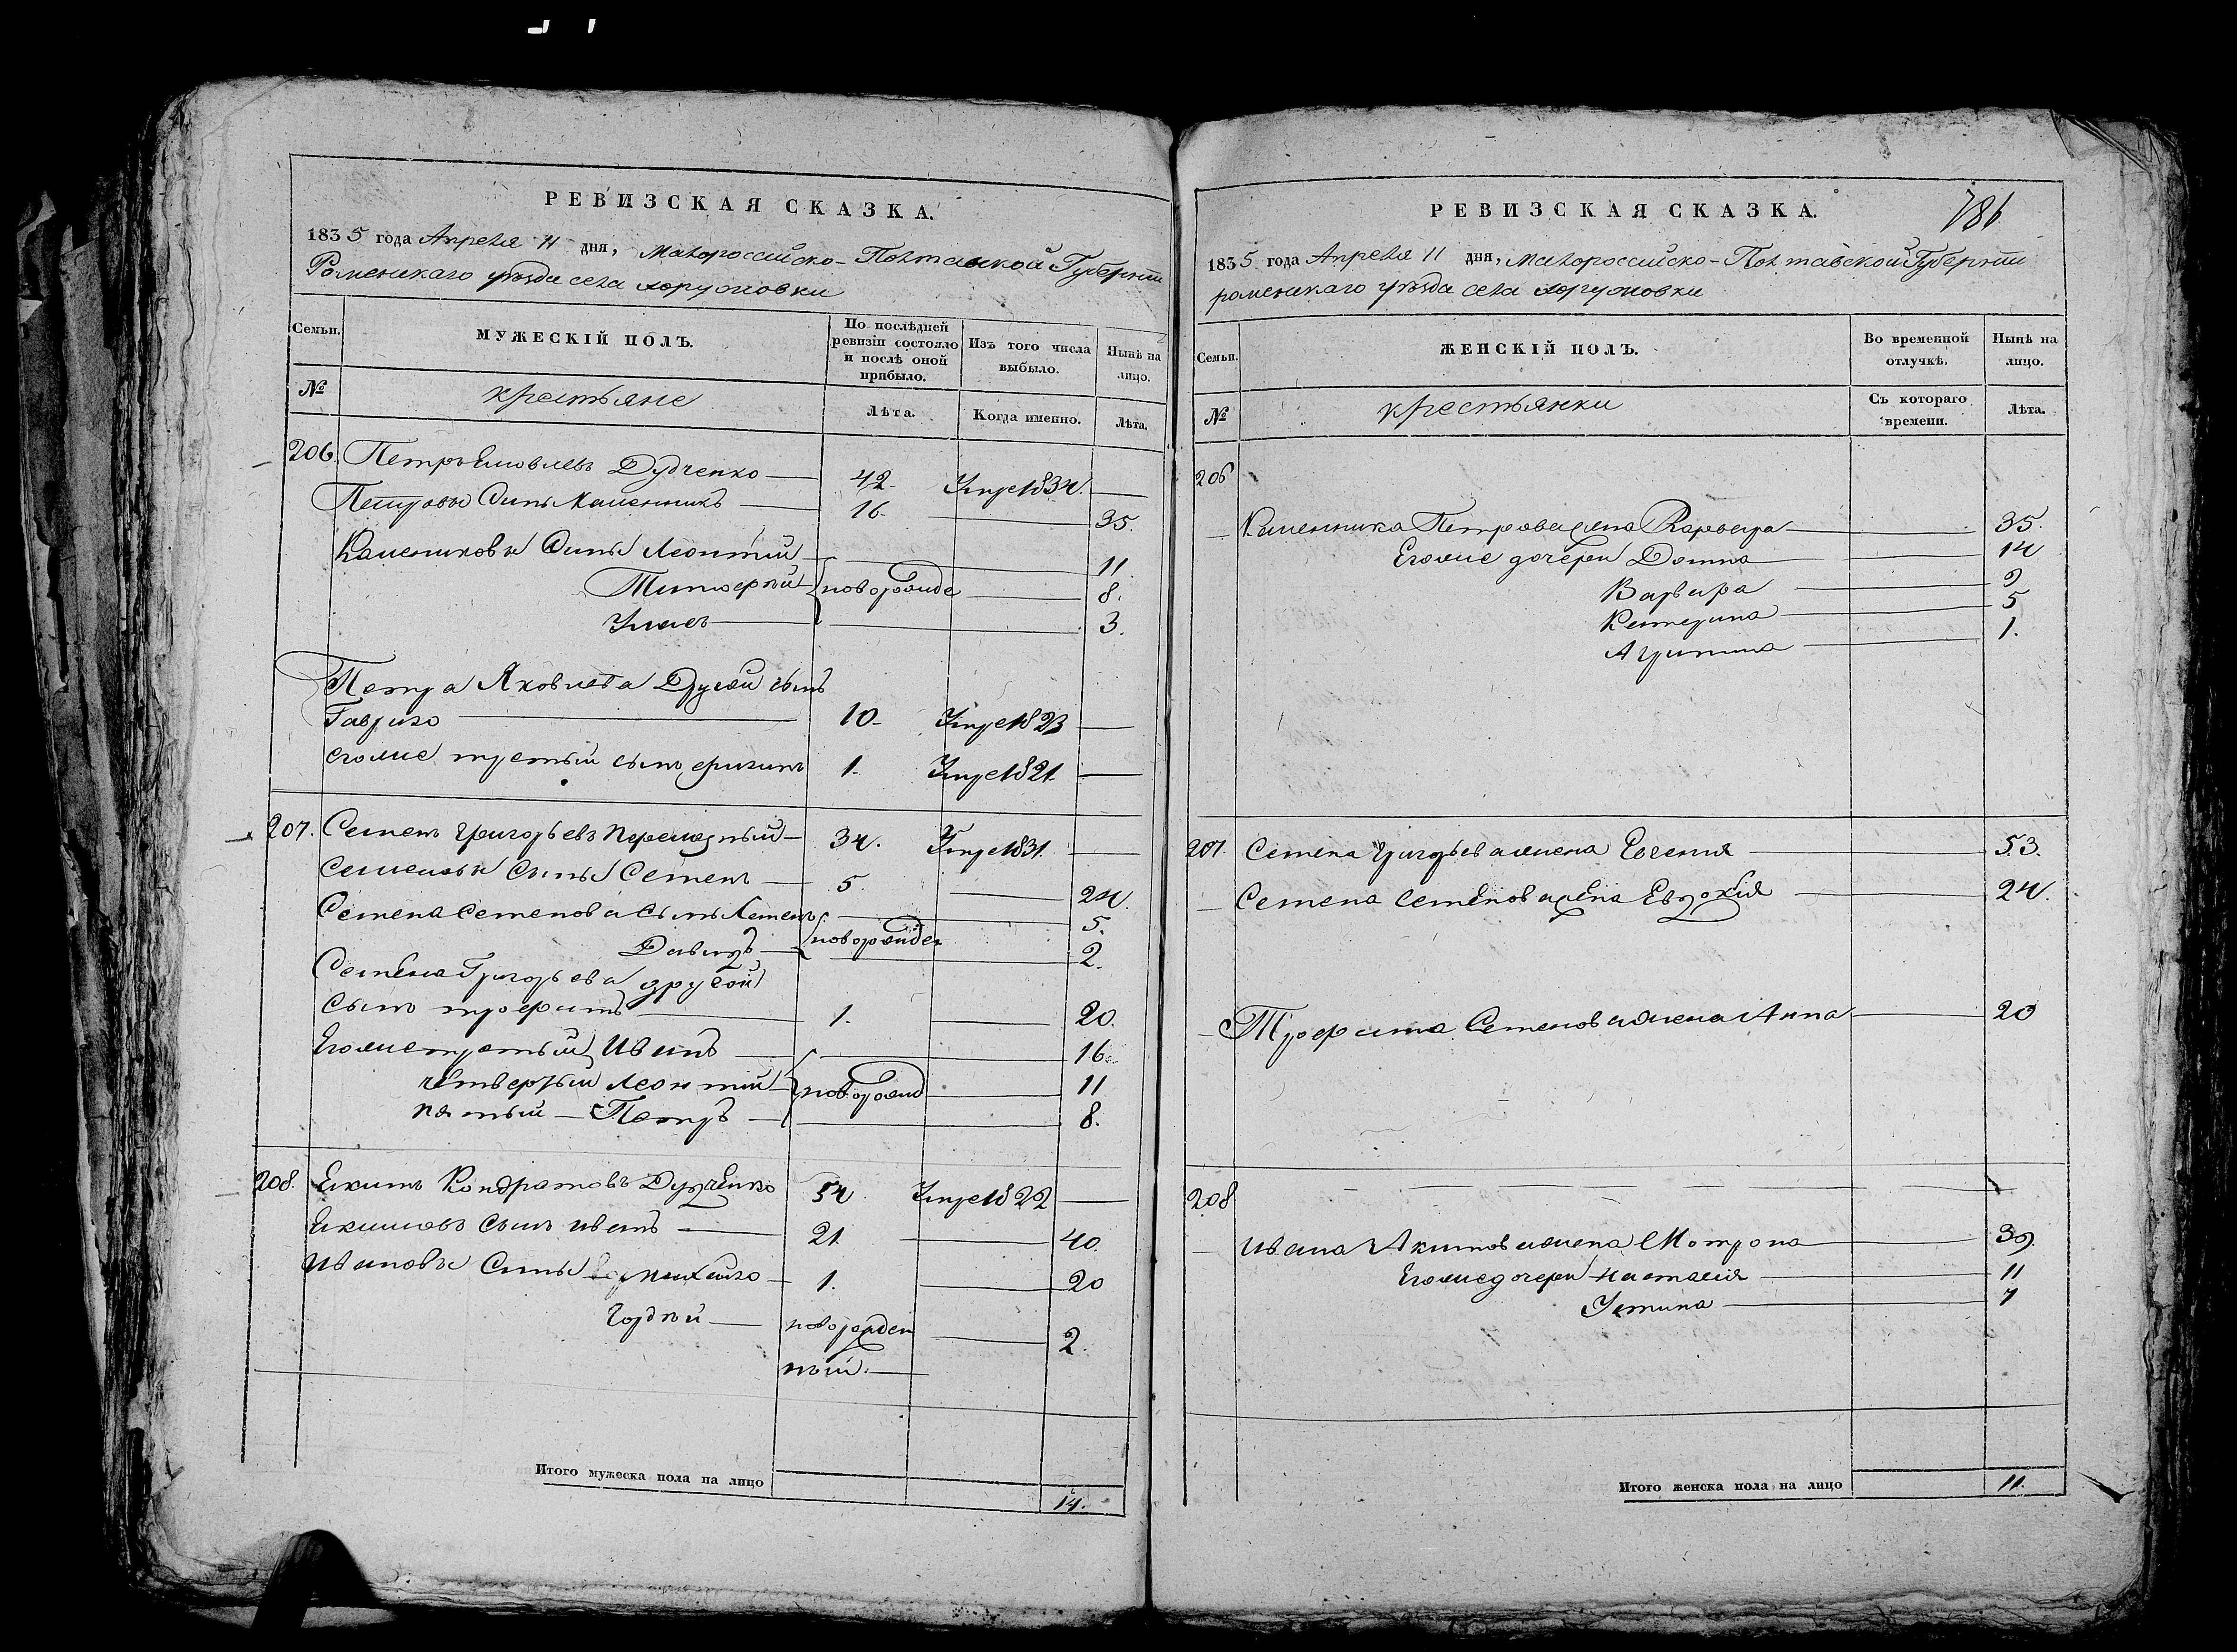 РЕВИЗСКАЯ СКАЗКА.
1835 года Апреля 11 дня, Малороссийско-Полтавской Губернии
Роменскаго уѣзда села
Семьи. МУЖЕСКІЙ ПОЛЪ. По послѣдней ревизіи состояло и послѣ оной прибыло. Изъ того числа выбыло. Нынѣ на лицо.
№ крестьяне Лѣта. Когда именно. Лѣта.
206. Петръ Яковлевъ Дудченко 42. Умре 1834.
Петровъ Сынъ Калинникъ 16. 35.
Калениковы Сыны Леонтій 11.
Тимоѳѣй новорожде 8.
Улас 3.
Петра Яковлева Другой сынъ
Гаврило 10. Умре 1823
егоже третьій сынъ 1. Умре 1821.
207. Семенъ Григорьевъ 34. Умре 1831.
Семеновы Сыны Семенъ 5. 24.
Семена Семенова Сынъ новорожден 5.
Давидъ 2.
Семена Григорьева другой
Сынъ трофимъ 1. 20.
Егоже третьій Иванъ 16.
четвертый Леонтій новорожд 11
пятый Петръ 8.
208. Екимъ Кондратовъ Дудченко 54 Умре 1822
Екимовъ Сынъ иванъ 21. 40.
Ивановы Сыны михайло 1. 20
Гордѣй новорожден 2.
ный.
Итого мужеска пола на лицо 14.
РЕВИЗСКАЯ СКАЗКА. 786
1835 года Апреля 11 дня, Малороссийско-Полтавской Губернии
роменскаго уѣзда села
Семьи. ЖЕНСКІЙ ПОЛЪ. Во временной отлучкѣ. Нынѣ на лицо.
№ крестьянки Съ котораго времени. Лѣта.
206
Калинника Петрова жена Варвара 35.
Егоже дочери Домна 14
Варвара 9
Катерина 5
Агрипина 1.
207. Семена Григорьева жена 53.
Семена Семенова жена Евдокія 24.
Трофима Семенова жена Анна 20
208
Ивана Акимова жена Мотрона 39.
Егоже дочери Настасія 11
Устина 7
Итого женска пола на лицо 11.